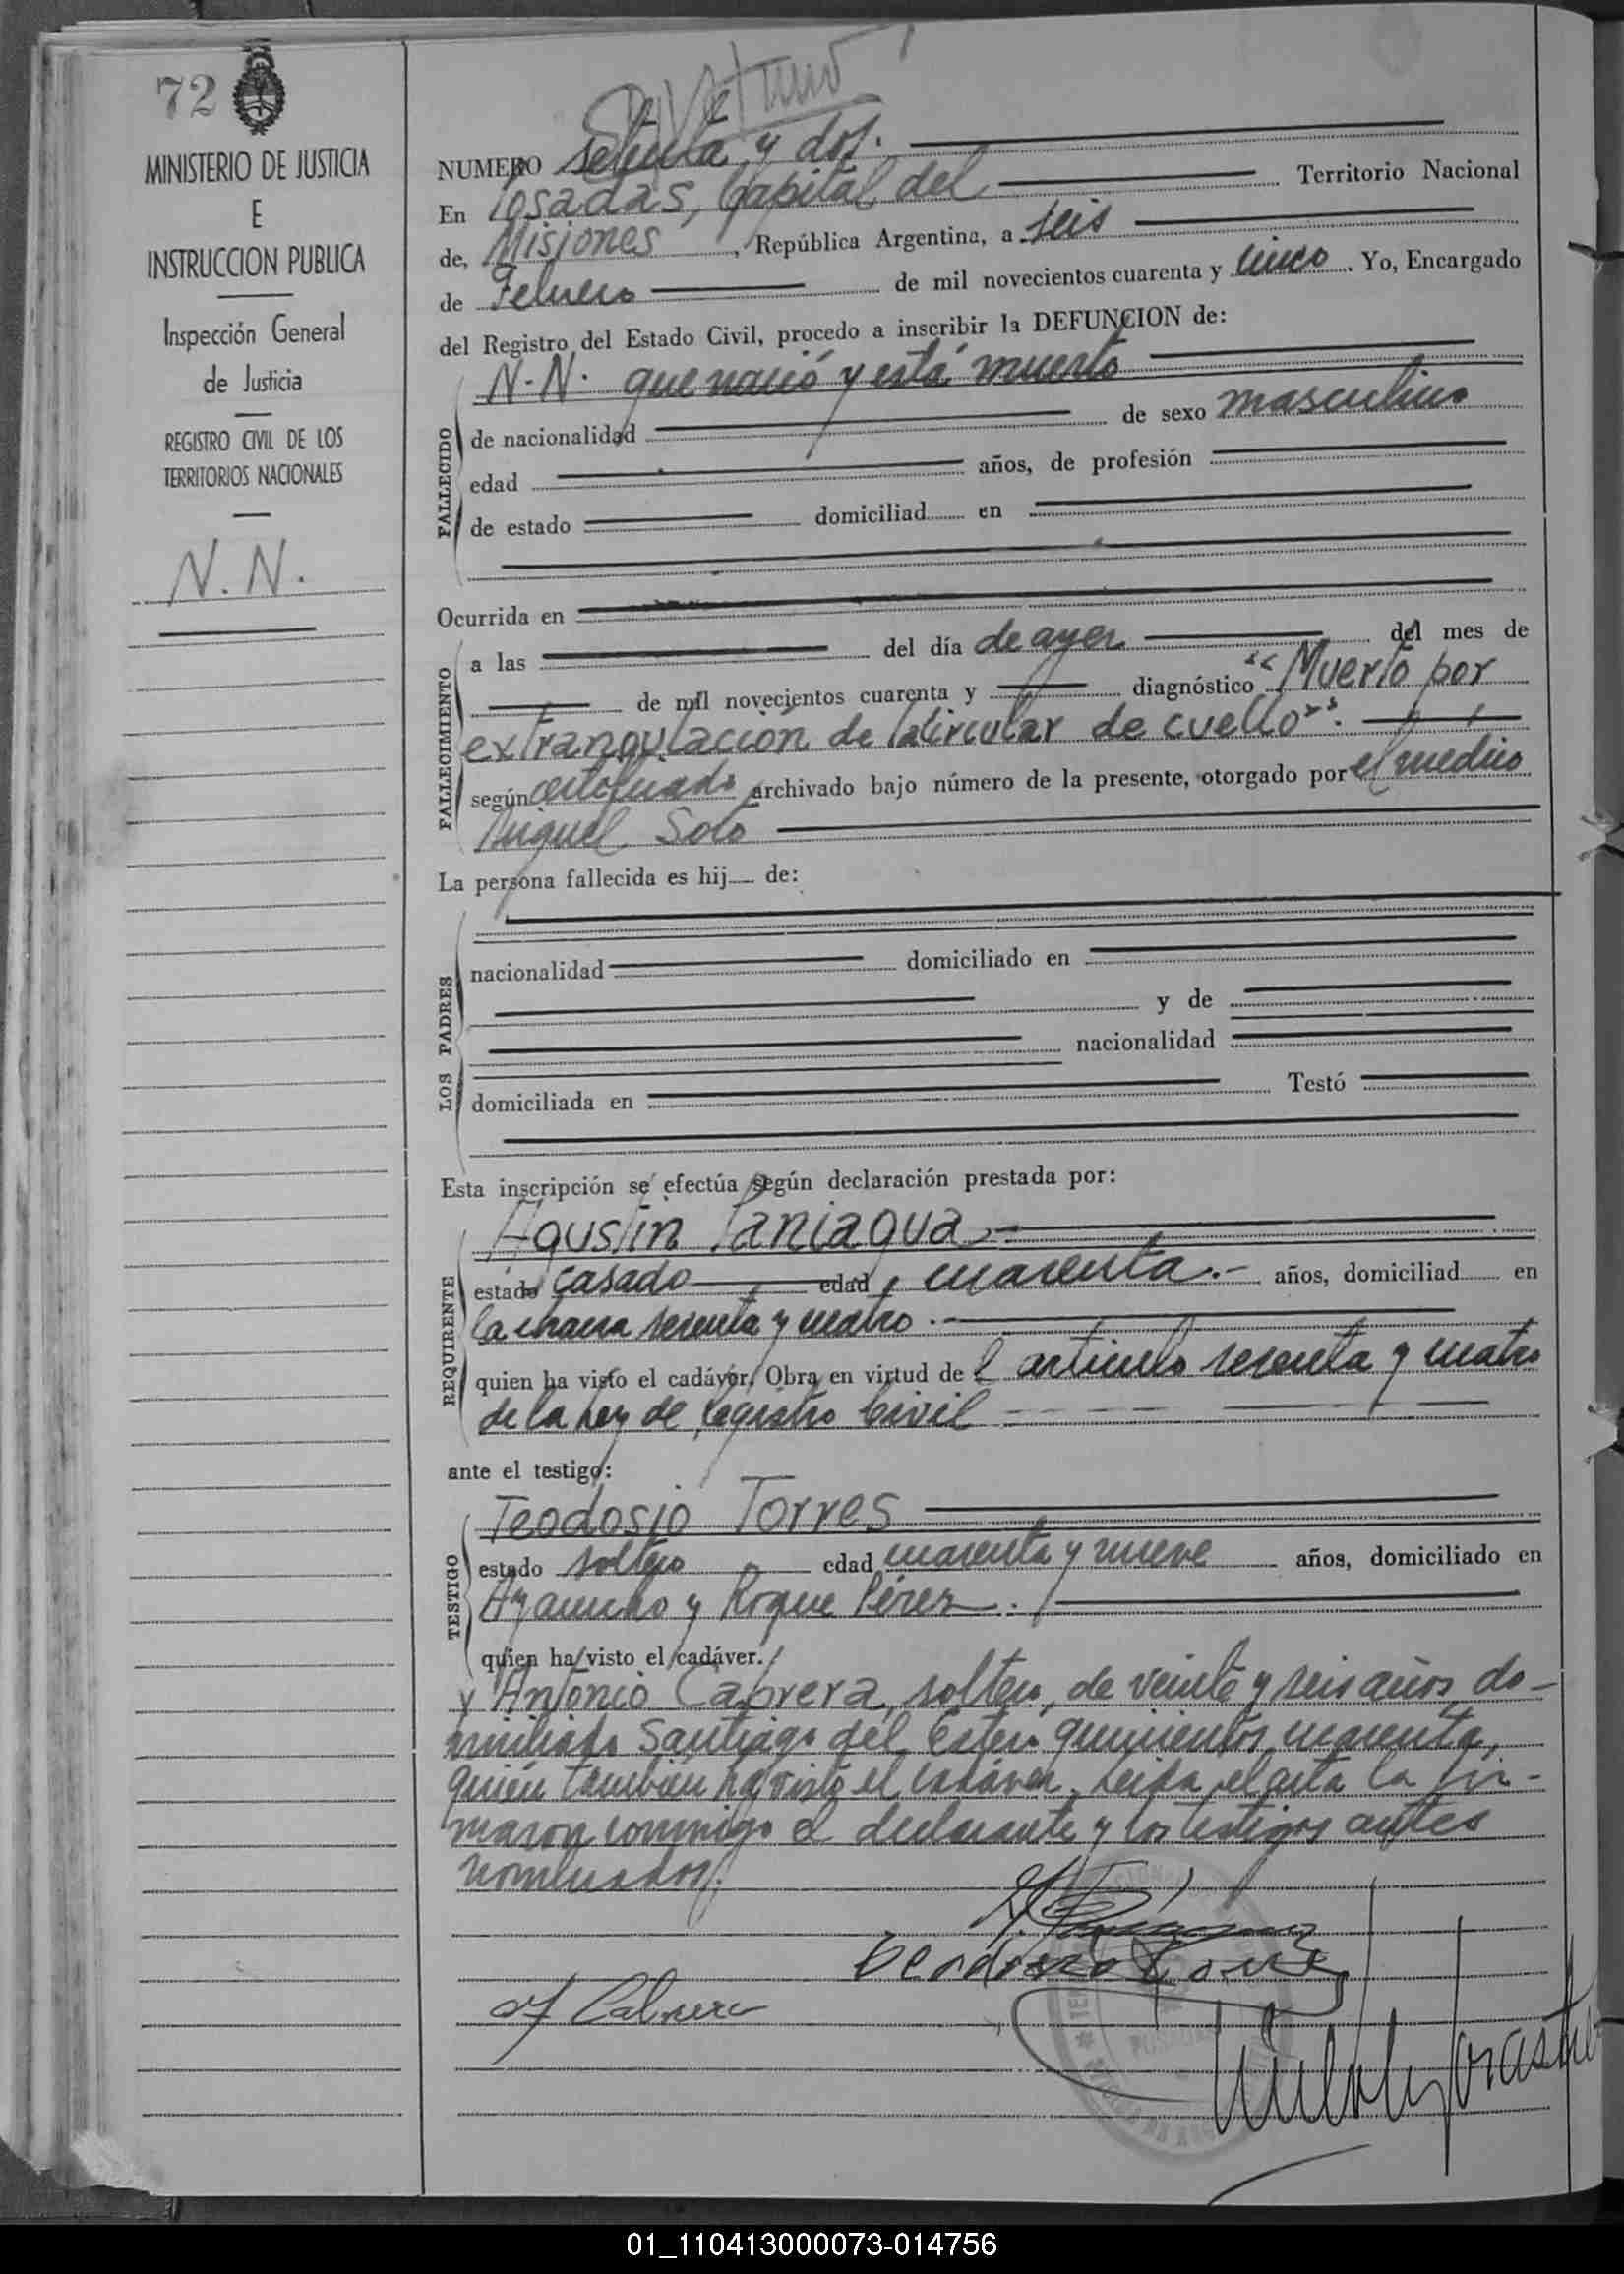 72
MINISTERIO DE JUSTICIA
E
INSTRUCCION PUBLICA
Inspección General
de Justicia
REGISTRO CIVIL DE LOS
TERRITORIOS NACIONALES
N.N.
NUMERO setenta y dos.
En Posadas, Capital del Territorio Nacional
de, Misiones, República Argentina, a seis
de Febrero de mil novecientos cuarenta y cinco. Yo, Encargado
del Registro del Estado Civil, procedo a inscribir la DEFUNCION de:
FALLECIDO
N.N. que nació y está muerto
de nacionalidad de sexo masculino
edad años, de profesión
de estado domiciliad en
Ocurrida en
FALLECIMIENTO
a las del día de ayer del mes de
de mil novecientos cuarenta y diagnóstico "Muerto por
extrangulación de circular de cuello".
según certificado archivado bajo número de la presente, otorgado por el médico
Miguel Soto
La persona fallecida es hij de:
LOS PADRES
nacionalidad domiciliado en
y de
nacionalidad
domiciliada en Testó
Esta inscripción se efectúa según declaración prestada por:
REQUIRENTE
Agustín Paniagua.-
estado casado edad cuarenta.- años, domiciliad en
la chacra sesenta y cuatro.-
quien ha visto el cadáver. Obra en virtud de l artículo sesenta y cuatro
de la Ley de Registro Civil
ante el testigo:
TESTIGO
Teodosio Torres
estado soltero edad cuarenta y nueve años, domiciliado en
Ayacucho y Roque Pérez.
quien ha visto el cadáver.
y Antonio Cabrera, soltero, de veinte y seis años, do-
miciliado Santiago del Estero quinientos cuarenta,
quién también ha visto el cadáver. Leída el acta la fir-
maron conmigo el declarante y los testigos antes
nombrados.
Teodosio Torres
A Cabrera
01_110413000073-014756